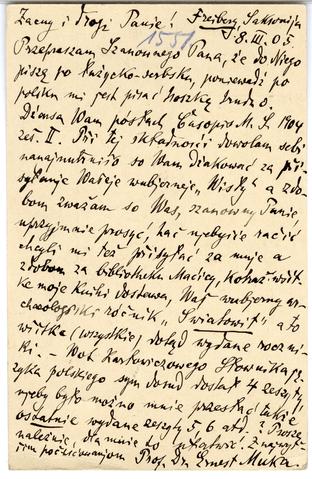 Zacny i drogi Panie! Freiberg Saksonija
1551 8. III. 05.
Przepraszam Szanownego Pana, że do Niego
piszę po łużycko-serbsku, ponieważ po
polsku mi jest pisać troszkę trudno.
Dźensa Wam posćełach Časopis M. S. 1904
zeš. II. Při tej składnosći dowolam sebi
najnutrnišo so Wam dźakować za při-
słanje Wašeje wubjerneje „Wisły" a zdo-
bom zwažam so Was, szanowny Panie
uprzyjmnie prosyć, hač njebyšće račić
chcyli mi tež připósłać za mnje a
zdobom za bibliotheku Maćicy, kotraž wšit-
ke moje knihi dostawa, Waš wubjerny ar-
chaeologiski ročnik „Światowit" a to
wšitke (wszystkie) dotąd wydane roczni-
ki. – Wot Karłowiczowego Słownika ję-
zyka polskiego sym dotud dostał 4 zeszyty;
njeby było możno mnie przesłać także
ostatnie wydane zeszyty 5. 6 atd.? Proszę
należnie, dla mnie to ułatwić. Z najwyż-
szem poćesćowanjom Prof. Dr. Ernest Muka.